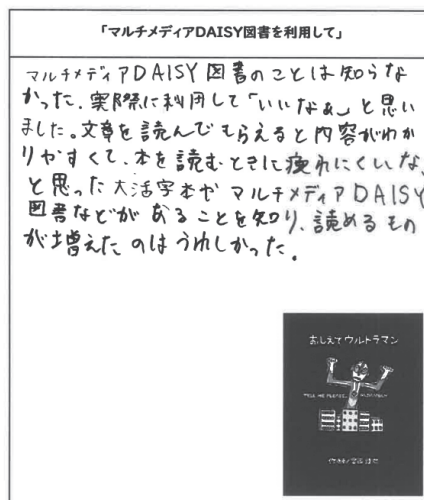 「マルチメディアDAISY図書を利用して」
マルチメディアDAISY図書のことは知らな
かった。実際に利用して「いいなぁ」と思い
ました。文章を読んでもらえると内容がわか
りやすくて、本を読むときに疲れにくいな、
と思った大活字本やマルチメディアDAISY
図書などがあることを知り、読めるもの
が増えたのはうれしかった。
おしえてウルトラマン
TELL ME PLEASE, ULTRAMAN